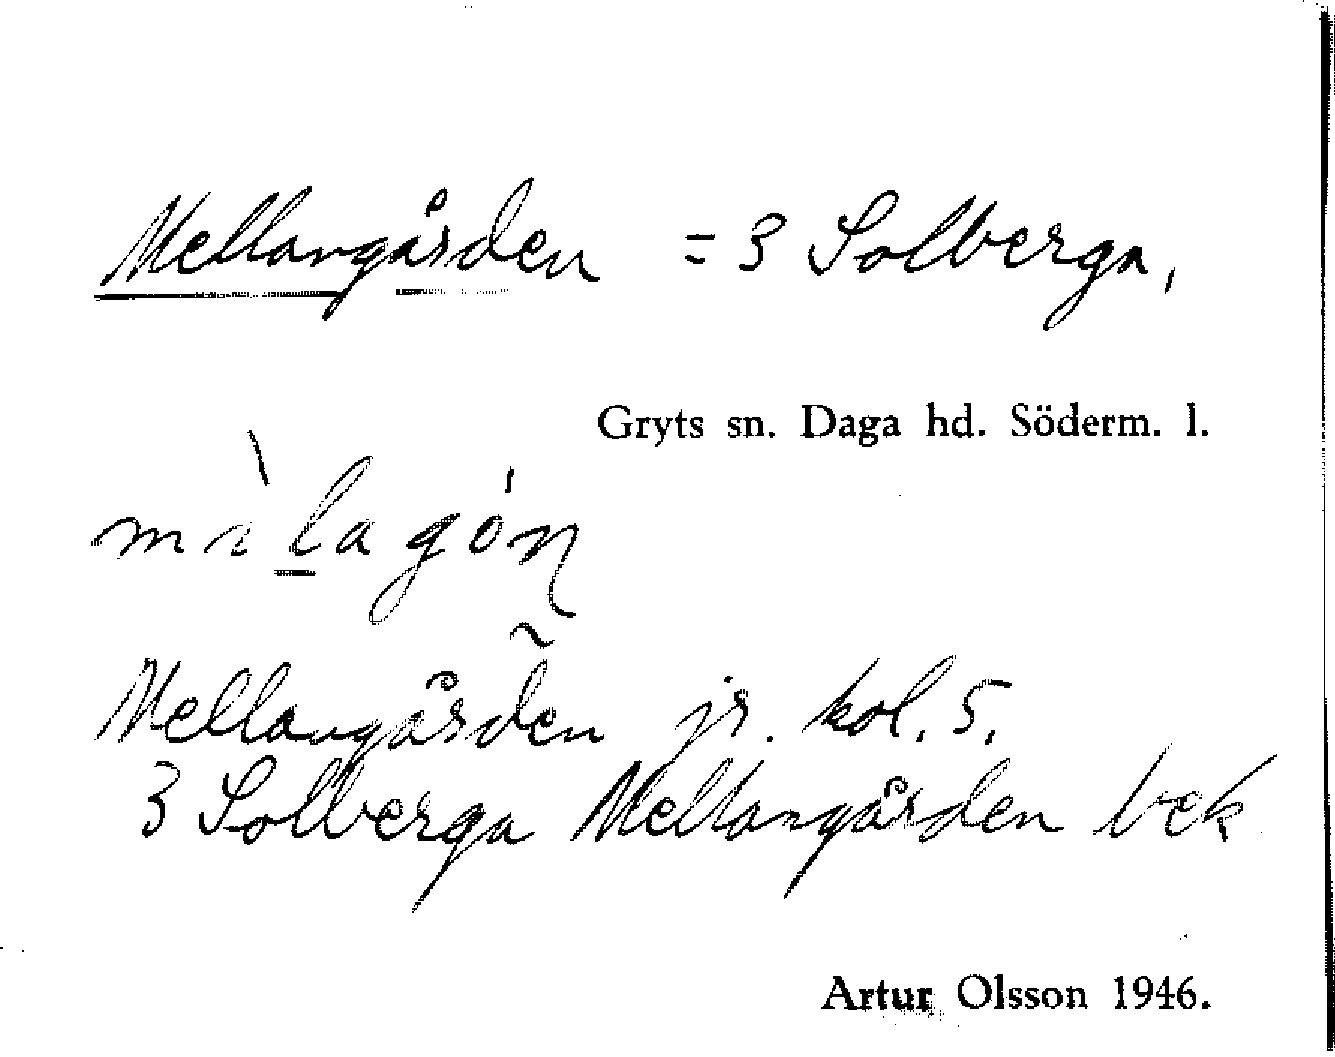 Mellangården = 3 Solberga,
Gryts sn. Daga hd. Söderm. l.
Mellangården jr. kol. 5.
3 Solberga Mellangården bek
Artur Olsson 1946.